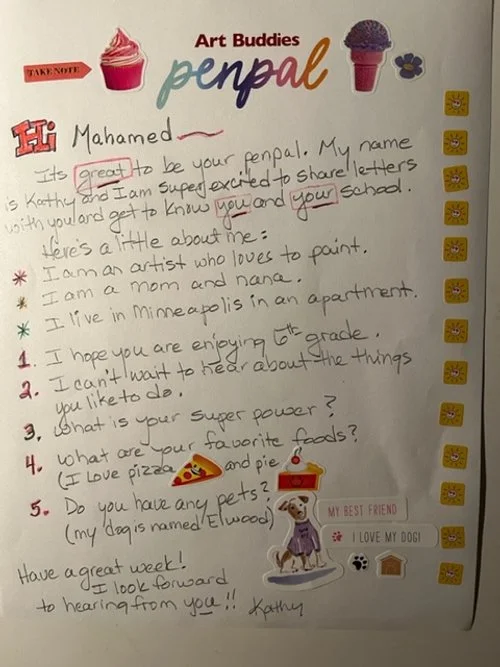 Art Buddies
TAKE NOTE
penpal
Hi Mahamed
Its great to be your penpal. My name
is Kathy and I am super excited to share letters
with you and get to know you and your school.
Here's a little about me:
* I am an artist who loves to paint.
* I am a mom and nana.
* I live in Minneapolis in an apartment.
1. I hope you are enjoying 6th grade.
2. I can't wait to hear about the things
you like to do.
3. What is your super power?
4. What are your favorite foods?
(I Love pizza and pie
5. Do you have any pets?
(my dog is named Elwood)
MY BEST FRIEND
I LOVE MY DOG!
Have a great week!
I look forward
to hearing from you!! Kathy